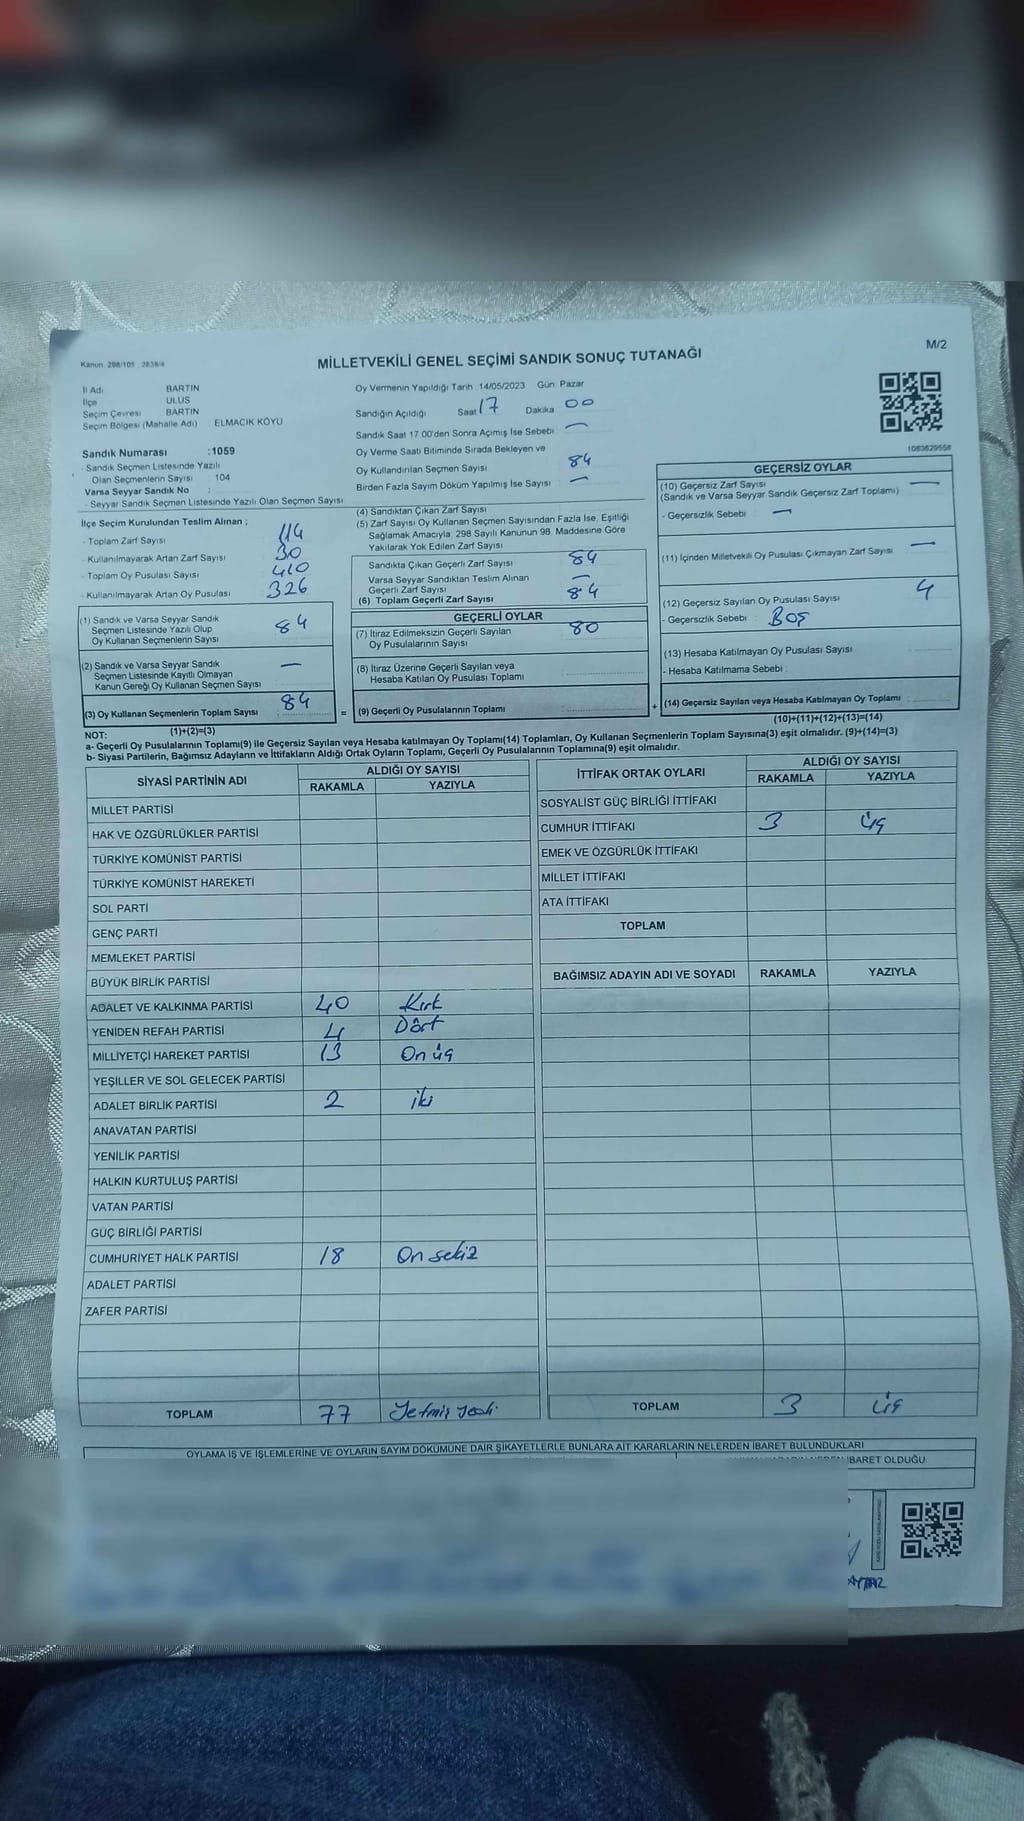 M/2
Kanun: 298/105
MİLLETVEKİLİ GENEL SEÇİMİ SANDIK SONUÇ TUTANAĞI
İl Adı BARTIN
İlçe ULUS
Seçim Çevresi BARTIN
Seçim Bölgesi (Mahalle Adı) ELMACIK KÖYÜ
Sandık Numarası :1059
- Sandık Seçmen Listesinde Yazılı
Olan Seçmenlerin Sayısı 104
Varsa Seyyar Sandık No :
- Seyyar Sandık Seçmen Listesinde Yazılı Olan Seçmen Sayısı
İlçe Seçim Kurulundan Teslim Alınan ;
- Toplam Zarf Sayısı 114
- Kullanılmayarak Artan Zarf Sayısı 30
- Toplam Oy Pusulası Sayısı 410
- Kullanılmayarak Artan Oy Pusulası 326
(1) Sandık ve Varsa Seyyar Sandık
Seçmen Listesinde Yazılı Olup
Oy Kullanan Seçmenlerin Sayısı 84
(2) Sandık ve Varsa Seyyar Sandık
Seçmen Listesinde Kayıtlı Olmayan
Kanun Gereği Oy Kullanan Seçmen Sayısı —
(3) Oy Kullanan Seçmenlerin Toplam Sayısı 84
(1)+(2)=(3)
Oy Vermenin Yapıldığı Tarih 14/05/2023 Gün: Pazar
Sandığın Açıldığı Saat 17 Dakika 00
Sandık Saat 17:00'den Sonra Açılmış İse Sebebi —
Oy Verme Saati Bitiminde Sırada Bekleyen ve
Oy Kullandırılan Seçmen Sayısı 84
Birden Fazla Sayım Döküm Yapılmış İse Sayısı —
(4) Sandıktan Çıkan Zarf Sayısı
(5) Zarf Sayısı Oy Kullanan Seçmen Sayısından Fazla İse, Eşitliği
Sağlamak Amacıyla, 298 Sayılı Kanunun 98. Maddesine Göre
Yakılarak Yok Edilen Zarf Sayısı
Sandıkta Çıkan Geçerli Zarf Sayısı 84
Varsa Seyyar Sandıktan Teslim Alınan
Geçerli Zarf Sayısı —
(6) Toplam Geçerli Zarf Sayısı 84
GEÇERLİ OYLAR
(7) İtiraz Edilmeksizin Geçerli Sayılan
Oy Pusulalarının Sayısı 80
(8) İtiraz Üzerine Geçerli Sayılan veya
Hesaba Katılan Oy Pusulası Toplamı
= (9) Geçerli Oy Pusulalarının Toplamı +
1083629558
GEÇERSİZ OYLAR
(10) Geçersiz Zarf Sayısı —
(Sandık ve Varsa Seyyar Sandık Geçersiz Zarf Toplamı)
- Geçersizlik Sebebi : —
(11) İçinden Milletvekili Oy Pusulası Çıkmayan Zarf Sayısı —
(12) Geçersiz Sayılan Oy Pusulası Sayısı 4
- Geçersizlik Sebebi : BOŞ
(13) Hesaba Katılmayan Oy Pusulası Sayısı
- Hesaba Katılmama Sebebi :
(14) Geçersiz Sayılan veya Hesaba Katılmayan Oy Toplamı :
(10)+(11)+(12)+(13)=(14)
NOT:
a- Geçerli Oy Pusulalarının Toplamı(9) ile Geçersiz Sayılan veya Hesaba katılmayan Oy Toplamı(14) Toplamları, Oy Kullanan Seçmenlerin Toplam Sayısına(3) eşit olmalıdır. (9)+(14)=(3)
b- Siyasi Partilerin, Bağımsız Adayların ve İttifakların Aldığı Ortak Oyların Toplamı, Geçerli Oy Pusulalarının Toplamına(9) eşit olmalıdır.
SİYASİ PARTİNİN ADI ALDIĞI OY SAYISI
RAKAMLA YAZIYLA
MİLLET PARTİSİ
HAK VE ÖZGÜRLÜKLER PARTİSİ
TÜRKİYE KOMÜNİST PARTİSİ
TÜRKİYE KOMÜNİST HAREKETİ
SOL PARTİ
GENÇ PARTİ
MEMLEKET PARTİSİ
BÜYÜK BİRLİK PARTİSİ
ADALET VE KALKINMA PARTİSİ 40 Kırk
YENİDEN REFAH PARTİSİ 4 Dört
MİLLİYETÇİ HAREKET PARTİSİ 13 On üç
YEŞİLLER VE SOL GELECEK PARTİSİ
ADALET BİRLİK PARTİSİ 2 iki
ANAVATAN PARTİSİ
YENİLİK PARTİSİ
HALKIN KURTULUŞ PARTİSİ
VATAN PARTİSİ
GÜÇ BİRLİĞİ PARTİSİ
CUMHURİYET HALK PARTİSİ 18 On sekiz
ADALET PARTİSİ
ZAFER PARTİSİ
TOPLAM 77 Yetmiş yedi
İTTİFAK ORTAK OYLARI ALDIĞI OY SAYISI
RAKAMLA YAZIYLA
SOSYALİST GÜÇ BİRLİĞİ İTTİFAKI
CUMHUR İTTİFAKI 3 Üç
EMEK VE ÖZGÜRLÜK İTTİFAKI
MİLLET İTTİFAKI
ATA İTTİFAKI
TOPLAM
BAĞIMSIZ ADAYIN ADI VE SOYADI RAKAMLA YAZIYLA
TOPLAM 3 Üç
OYLAMA İŞ VE İŞLEMLERİNE VE OYLARIN SAYIM DÖKÜMÜNE DAİR ŞİKAYETLERLE BUNLARA AİT KARARLARIN NELERDEN İBARET BULUNDUKLARI
İBARET OLDUĞU